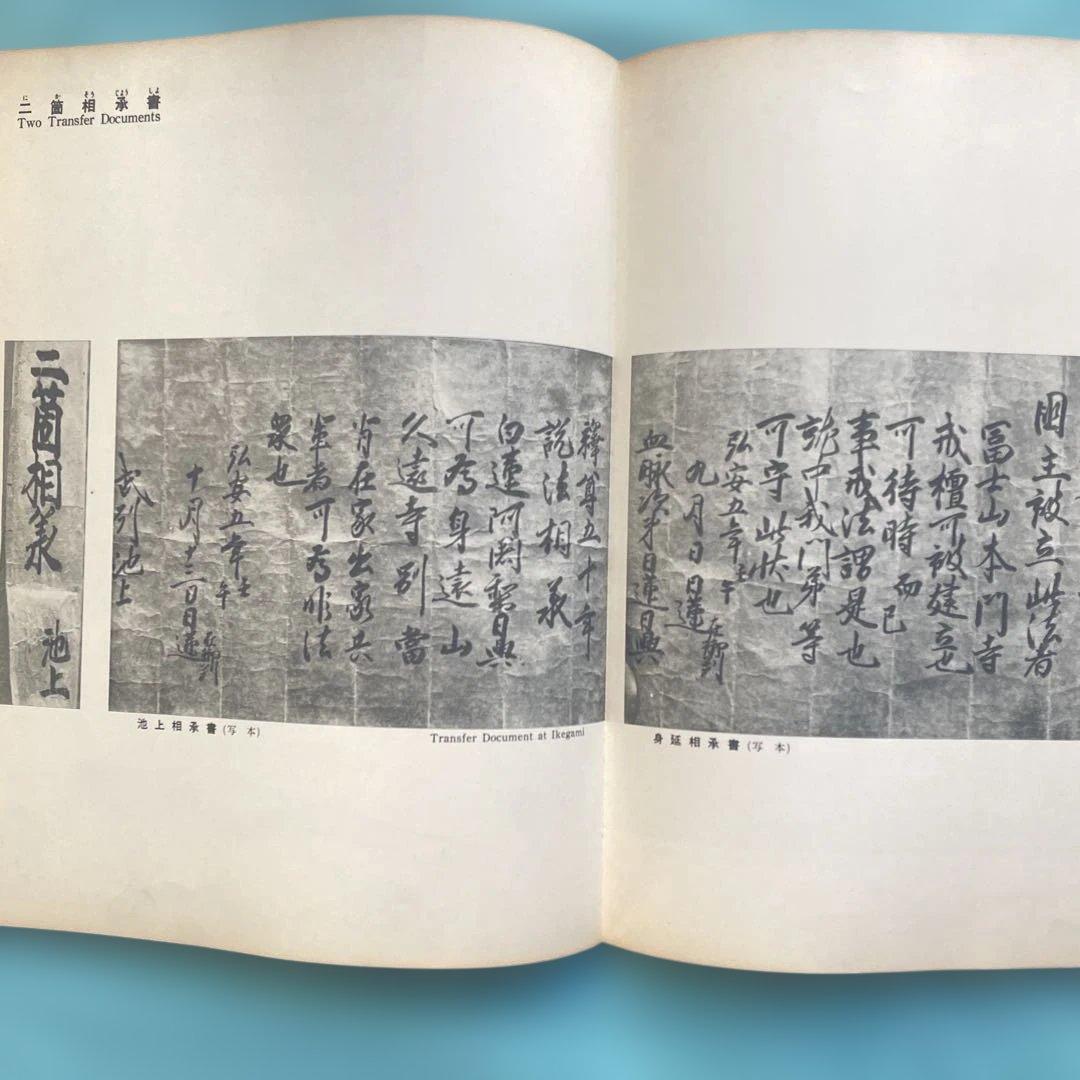 に か そう じょう しよ
二箇相承書
Two Transfer Documents
釋尊五十年
説法相承
白蓮阿闍梨日興
可為身遠山
久遠寺別當
背在家出家共
軰者可為非法
衆也
弘安五年壬午
十月十三日日蓮 在御判
武州池上
池上相承書(写本)
Transfer Document at Ikegami
二箇相承 池上
国主被立此法者
冨士山本門寺
戒檀可被建立也
可待時而已
事戒法謂是也
就中我門弟等
可守此状也
弘安五年壬午
九月日 日蓮 在御判
血脈次第日蓮日興
身延相承書(写本)